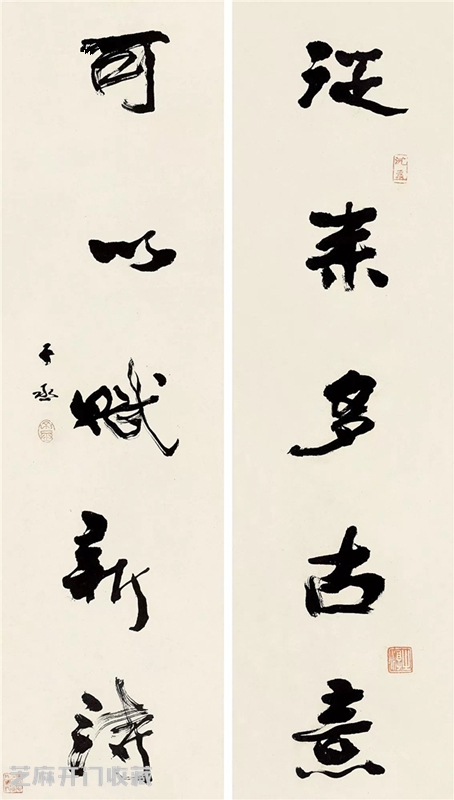 從來多古意
可以賦新詩
天丞
芝麻开门收藏